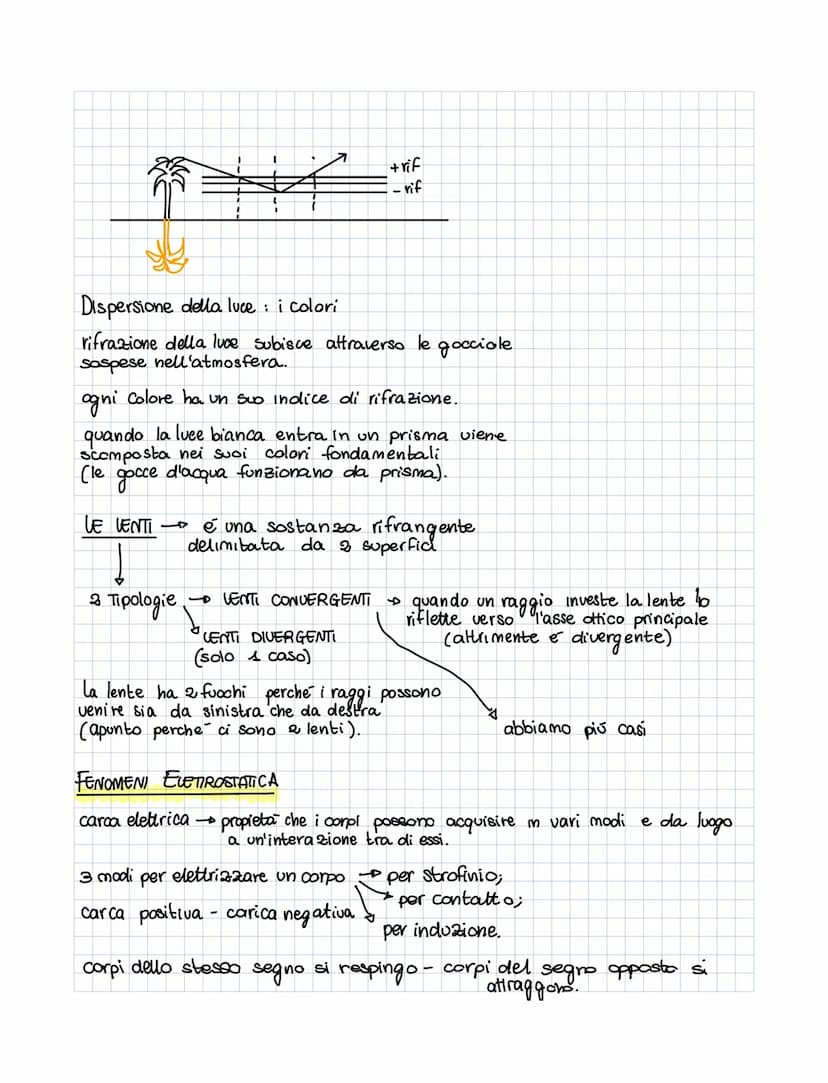 +rif
- rif
Dispersione della luce : i colori
rifrazione della luce subisce attraverso le gocciole
sospese nell'atmosfera.
ogni Colore ha un suo indice di rifrazione.
quando la luce bianca entra in un prisma viene
scomposta nei suoi colori fondamentali
(le gocce d'acqua funzionano da prisma).
LE LENTI → é una sostanza rifrangente
delimitata da 2 superfici
2 Tipologie → LENTI CONVERGENTI → quando un raggio investe la lente lo
riflette verso l'asse ottico principale
LENTI DIVERGENTI (altrimente é divergente)
(solo 1 caso)
La lente ha 2 fuochi perché i raggi possono
venire sia da sinistra che da destra
(apunto perche ci sono 2 lenti). abbiamo più casi
FENOMENI ELETTROSTATICA
carca elettrica → propietà che i corpi possono acquisire in vari modi e da luogo
a un'interazione tra di essi.
3 modi per elettrizzare un corpo → per strofinio;
per contatto;
carca positiva - carica negativa
per induzione.
corpi dello stesso segno si respingo - corpi del segno opposto si
attraggono.